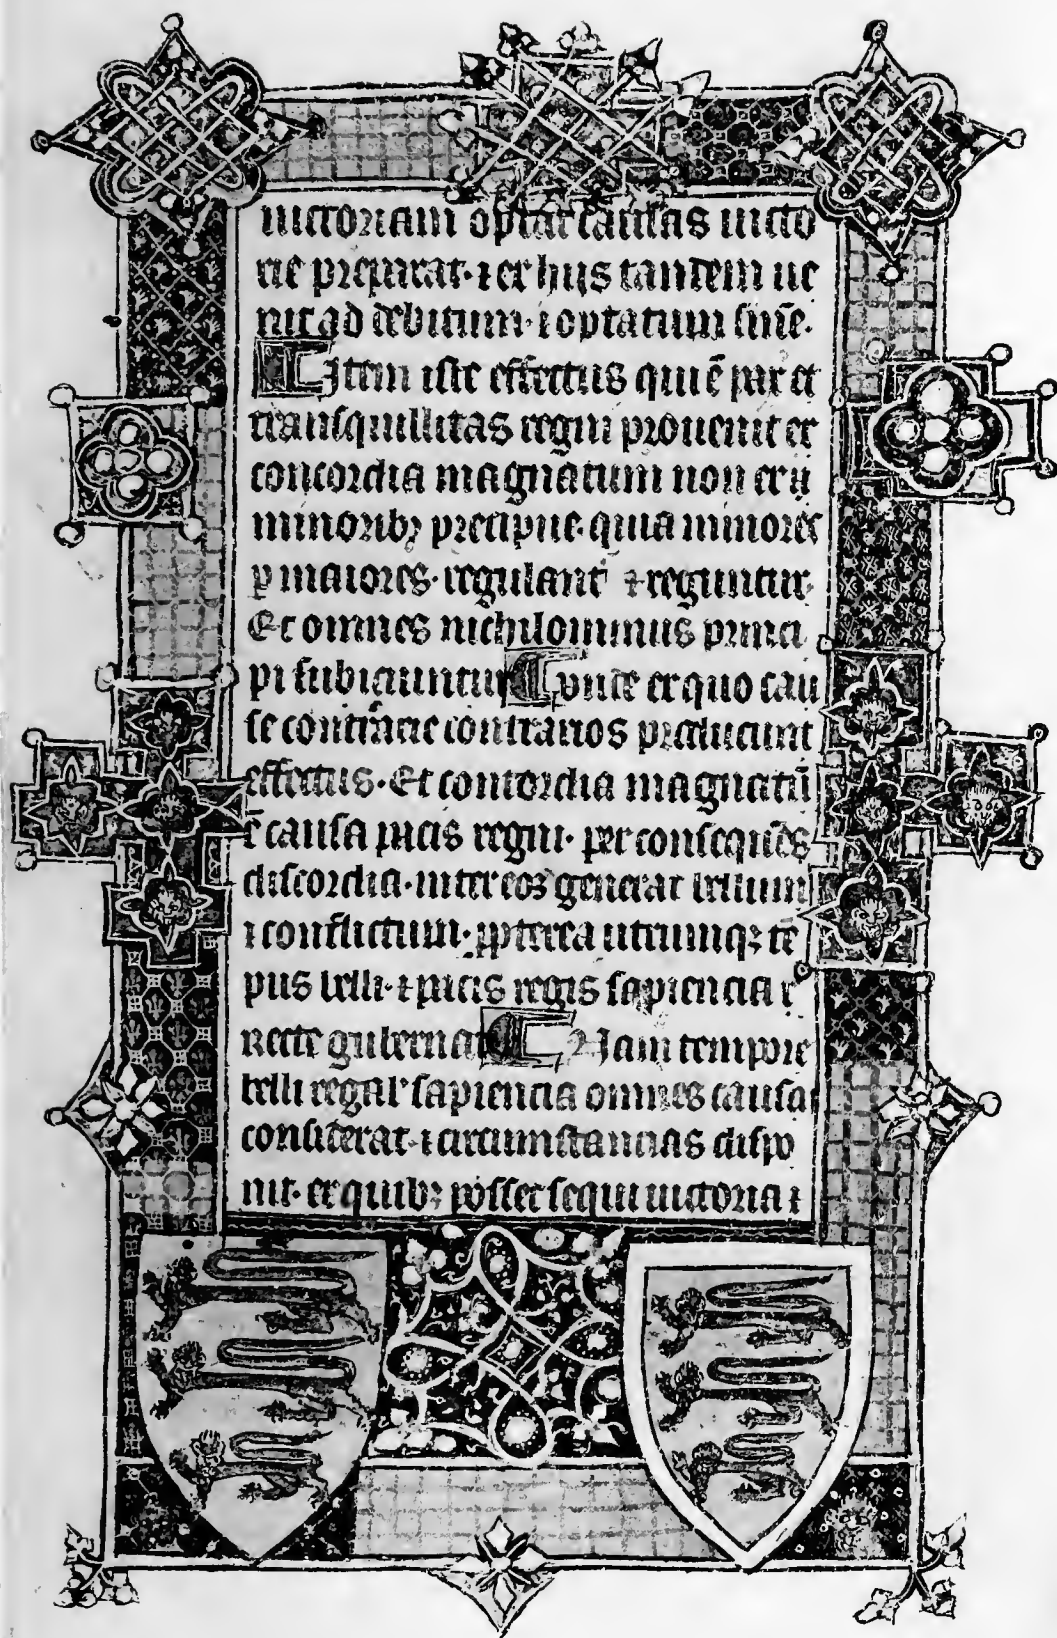 uictoriam optat causas uicto
rie preparat· ⁊ ex hijs tandem ue
nit ad debitum· ⁊ optatum finē·
Item iste effectus qui ē pax et
transquillitas regni prouenit ex
concordia magnatum non ex ij
minoribꝫ precipue· quia minores
ꝑ maiores· regulant᷑ ⁊ reguntur·
Et omnes nichilominus princi
pi subiciuntur Unde ex quo cau
se contrarie contrarios producunt
effectus· Et concordia magnatū
ē causa pacis regni· per consequēs
discordia· inter eos generat bellum
⁊ conflictum· ꝓpterea utrumqꝫ tē
pus belli· ⁊ pacis regis sapiencia
Recte gubernat Nam tempore
belli regal' sapiencia omnes causas
considerat· ⁊ circumstancias dispo
nit· ex quibꝫ posset sequi uictoria ⁊